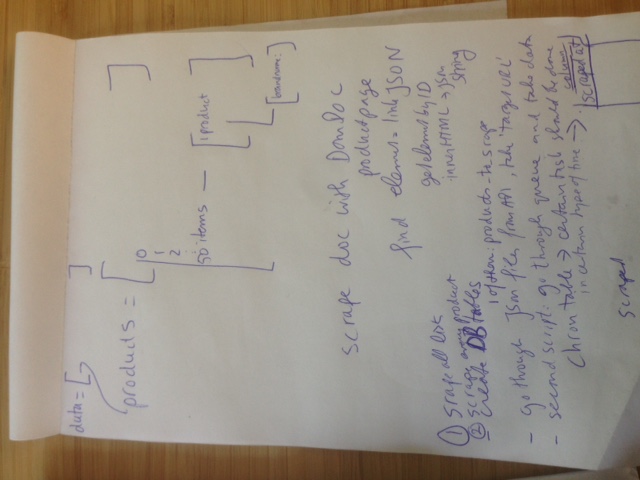 data = [ ]
products = [ ]
0
1
2
:
50 items — [1 product]
[brandname:]
scrape doc with DomDoc
product page
find element = link JSON
getelementbyID
innerHTML → json
string
① Srape all lists
② scrape product
- create DB tables
1 of them: products_to scrape
- go through Json files from API, take 'target URL'
- second script: go through queue and take data
Chron table → certain task should be done
in certain type of time →
column
scraped at
scraped